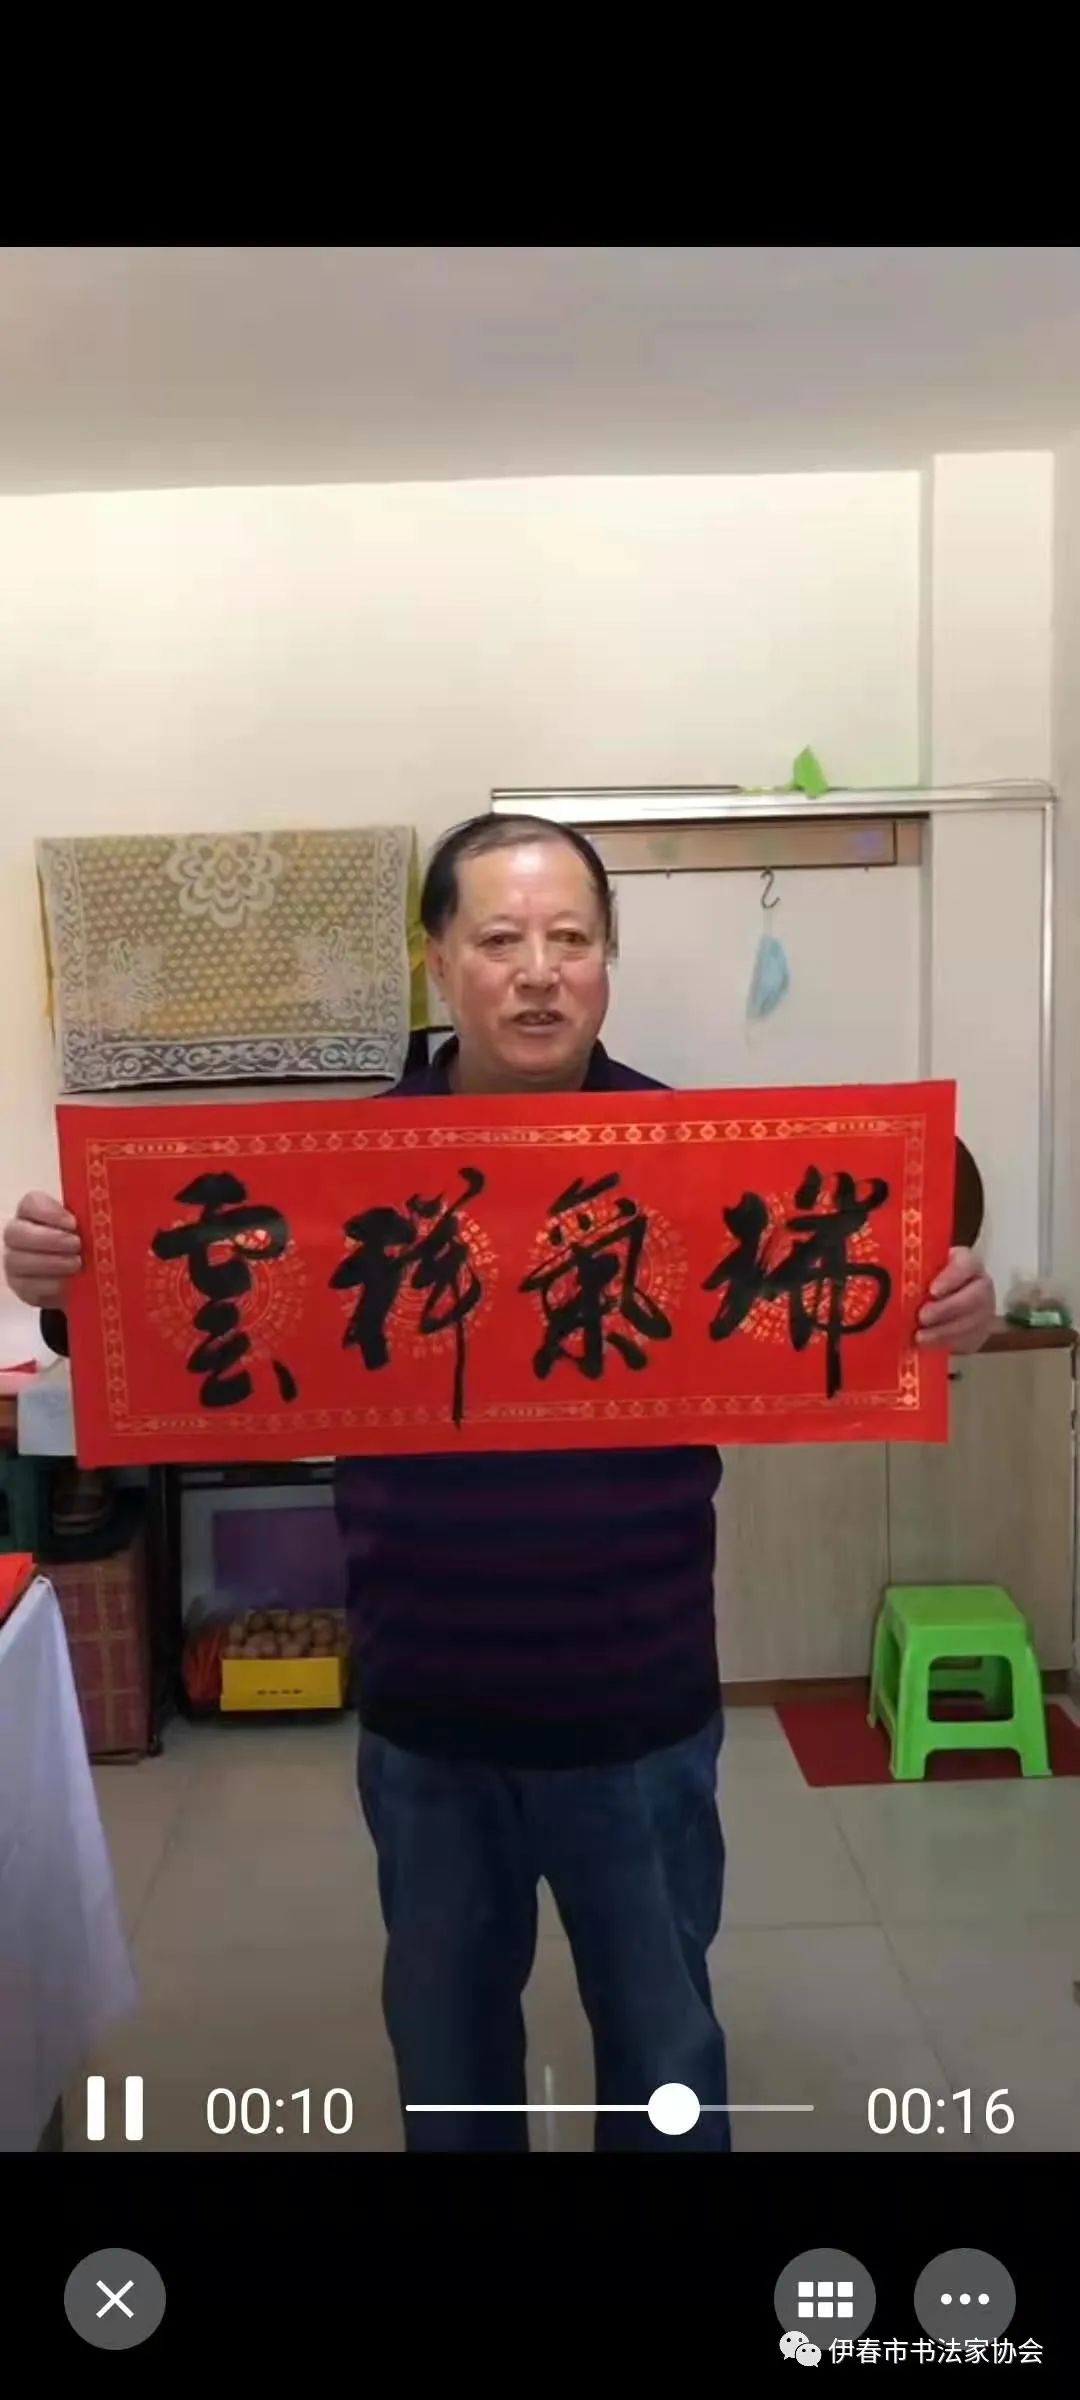 瑞氣祥雲
00:10
00:16
伊春市书法家协会